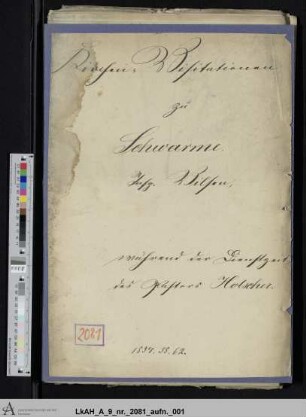 Kirchen-Visitationen
zu
Schwarme.
Insp. Vilsen,
während der Dienstzeit
des Pastors Holscher.
2081
1854. 58. 62.
LkAH_A_9_nr._2081_aufn._001